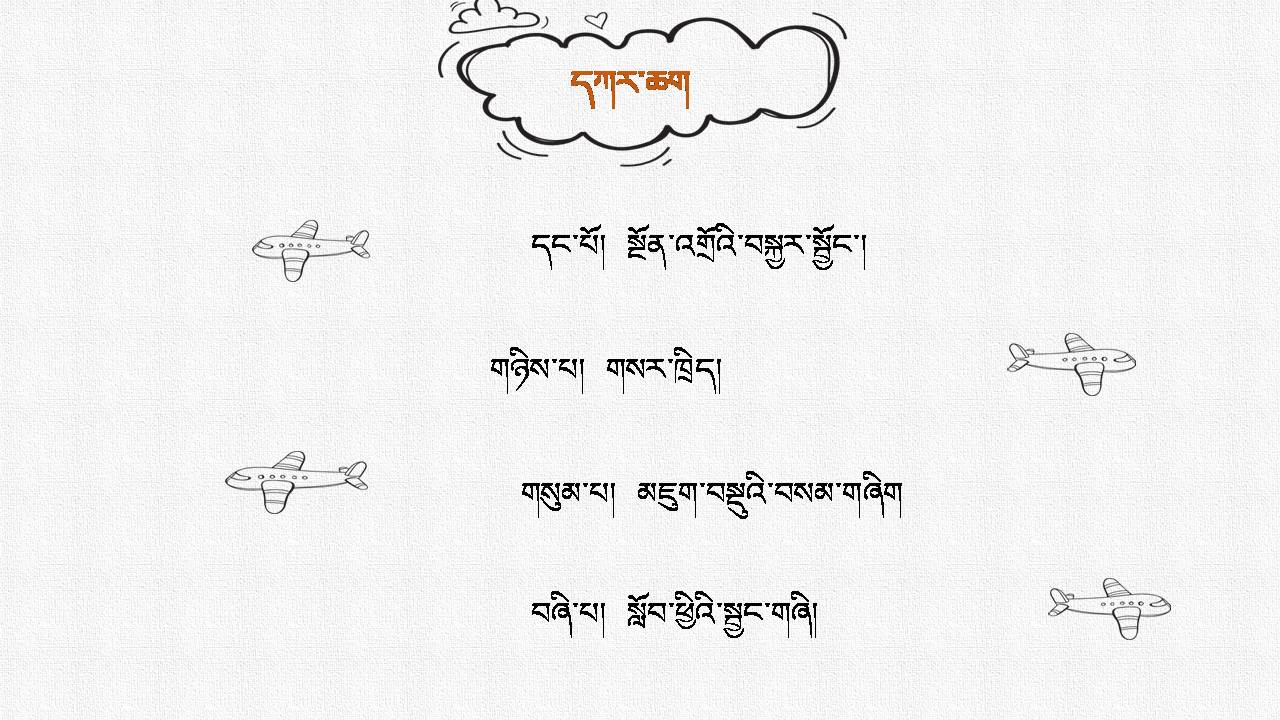 དཀར་ཆག
དང་པོ།  སྔོན་འགྲོའི་བསྐྱར་སྦྱོང་།
གཉིས་པ།  གསར་ཁྲིད།
གསུམ་པ།  མཇུག་བསྡུའི་བསམ་གཞིག
བཞི་པ།  སློབ་ཕྱིའི་སྦྱང་གཞི།